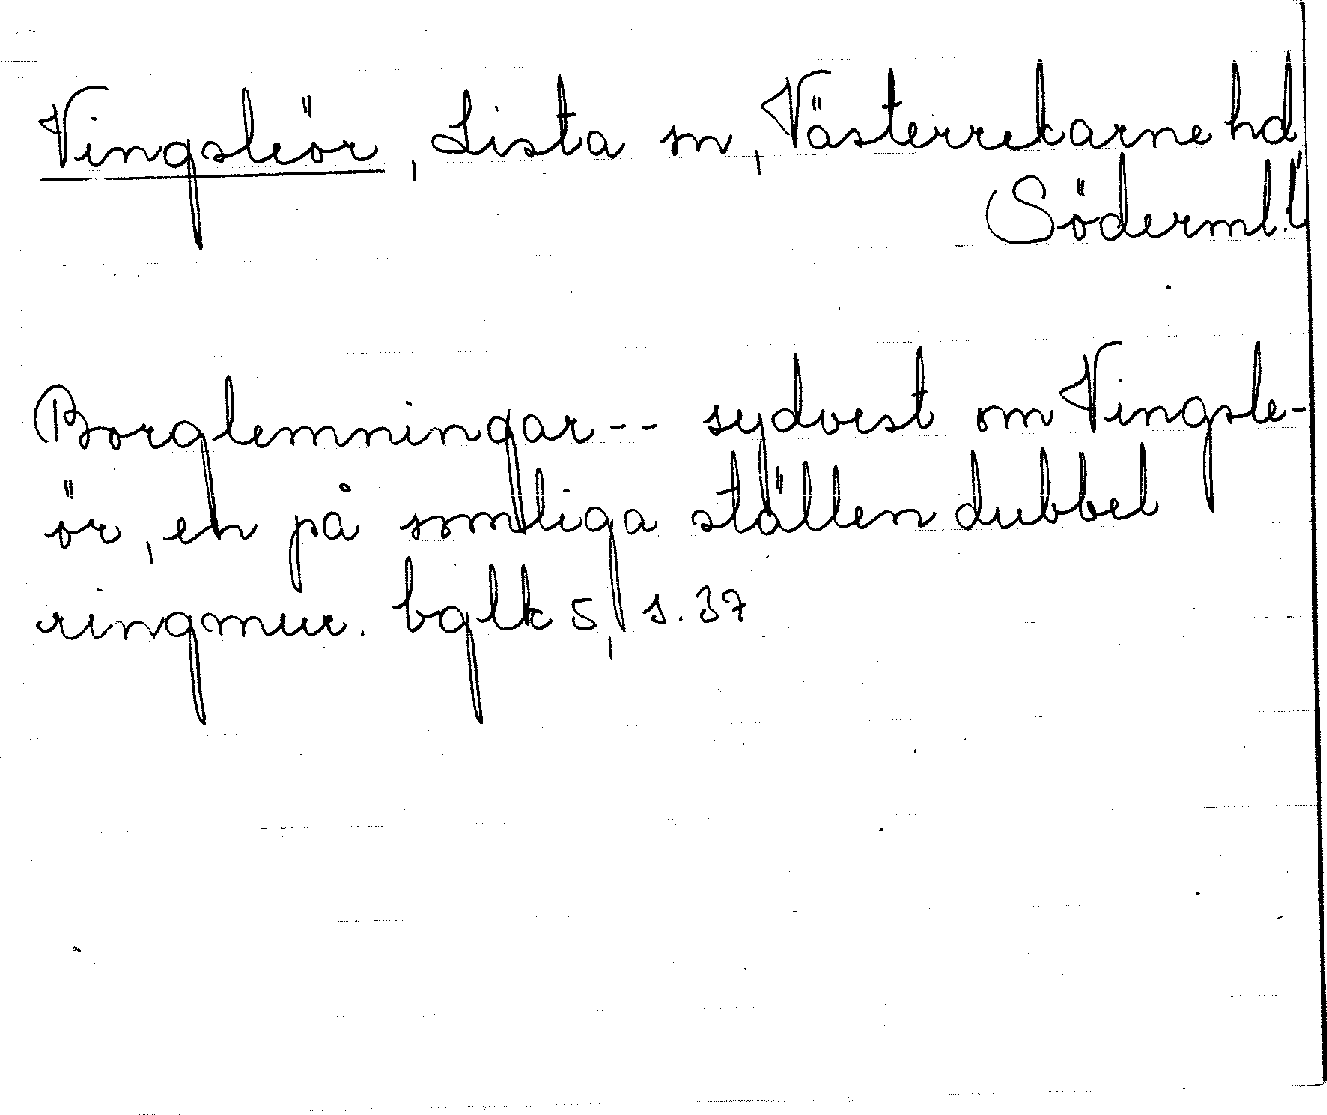 Vingsleör, Lista sn, Västerrekarne hd,
Söderml.l
Borglemningar -- sydvest om Vingsle-
ör, en på somliga ställen dubbel
ringmur. bglk 5, s. 37